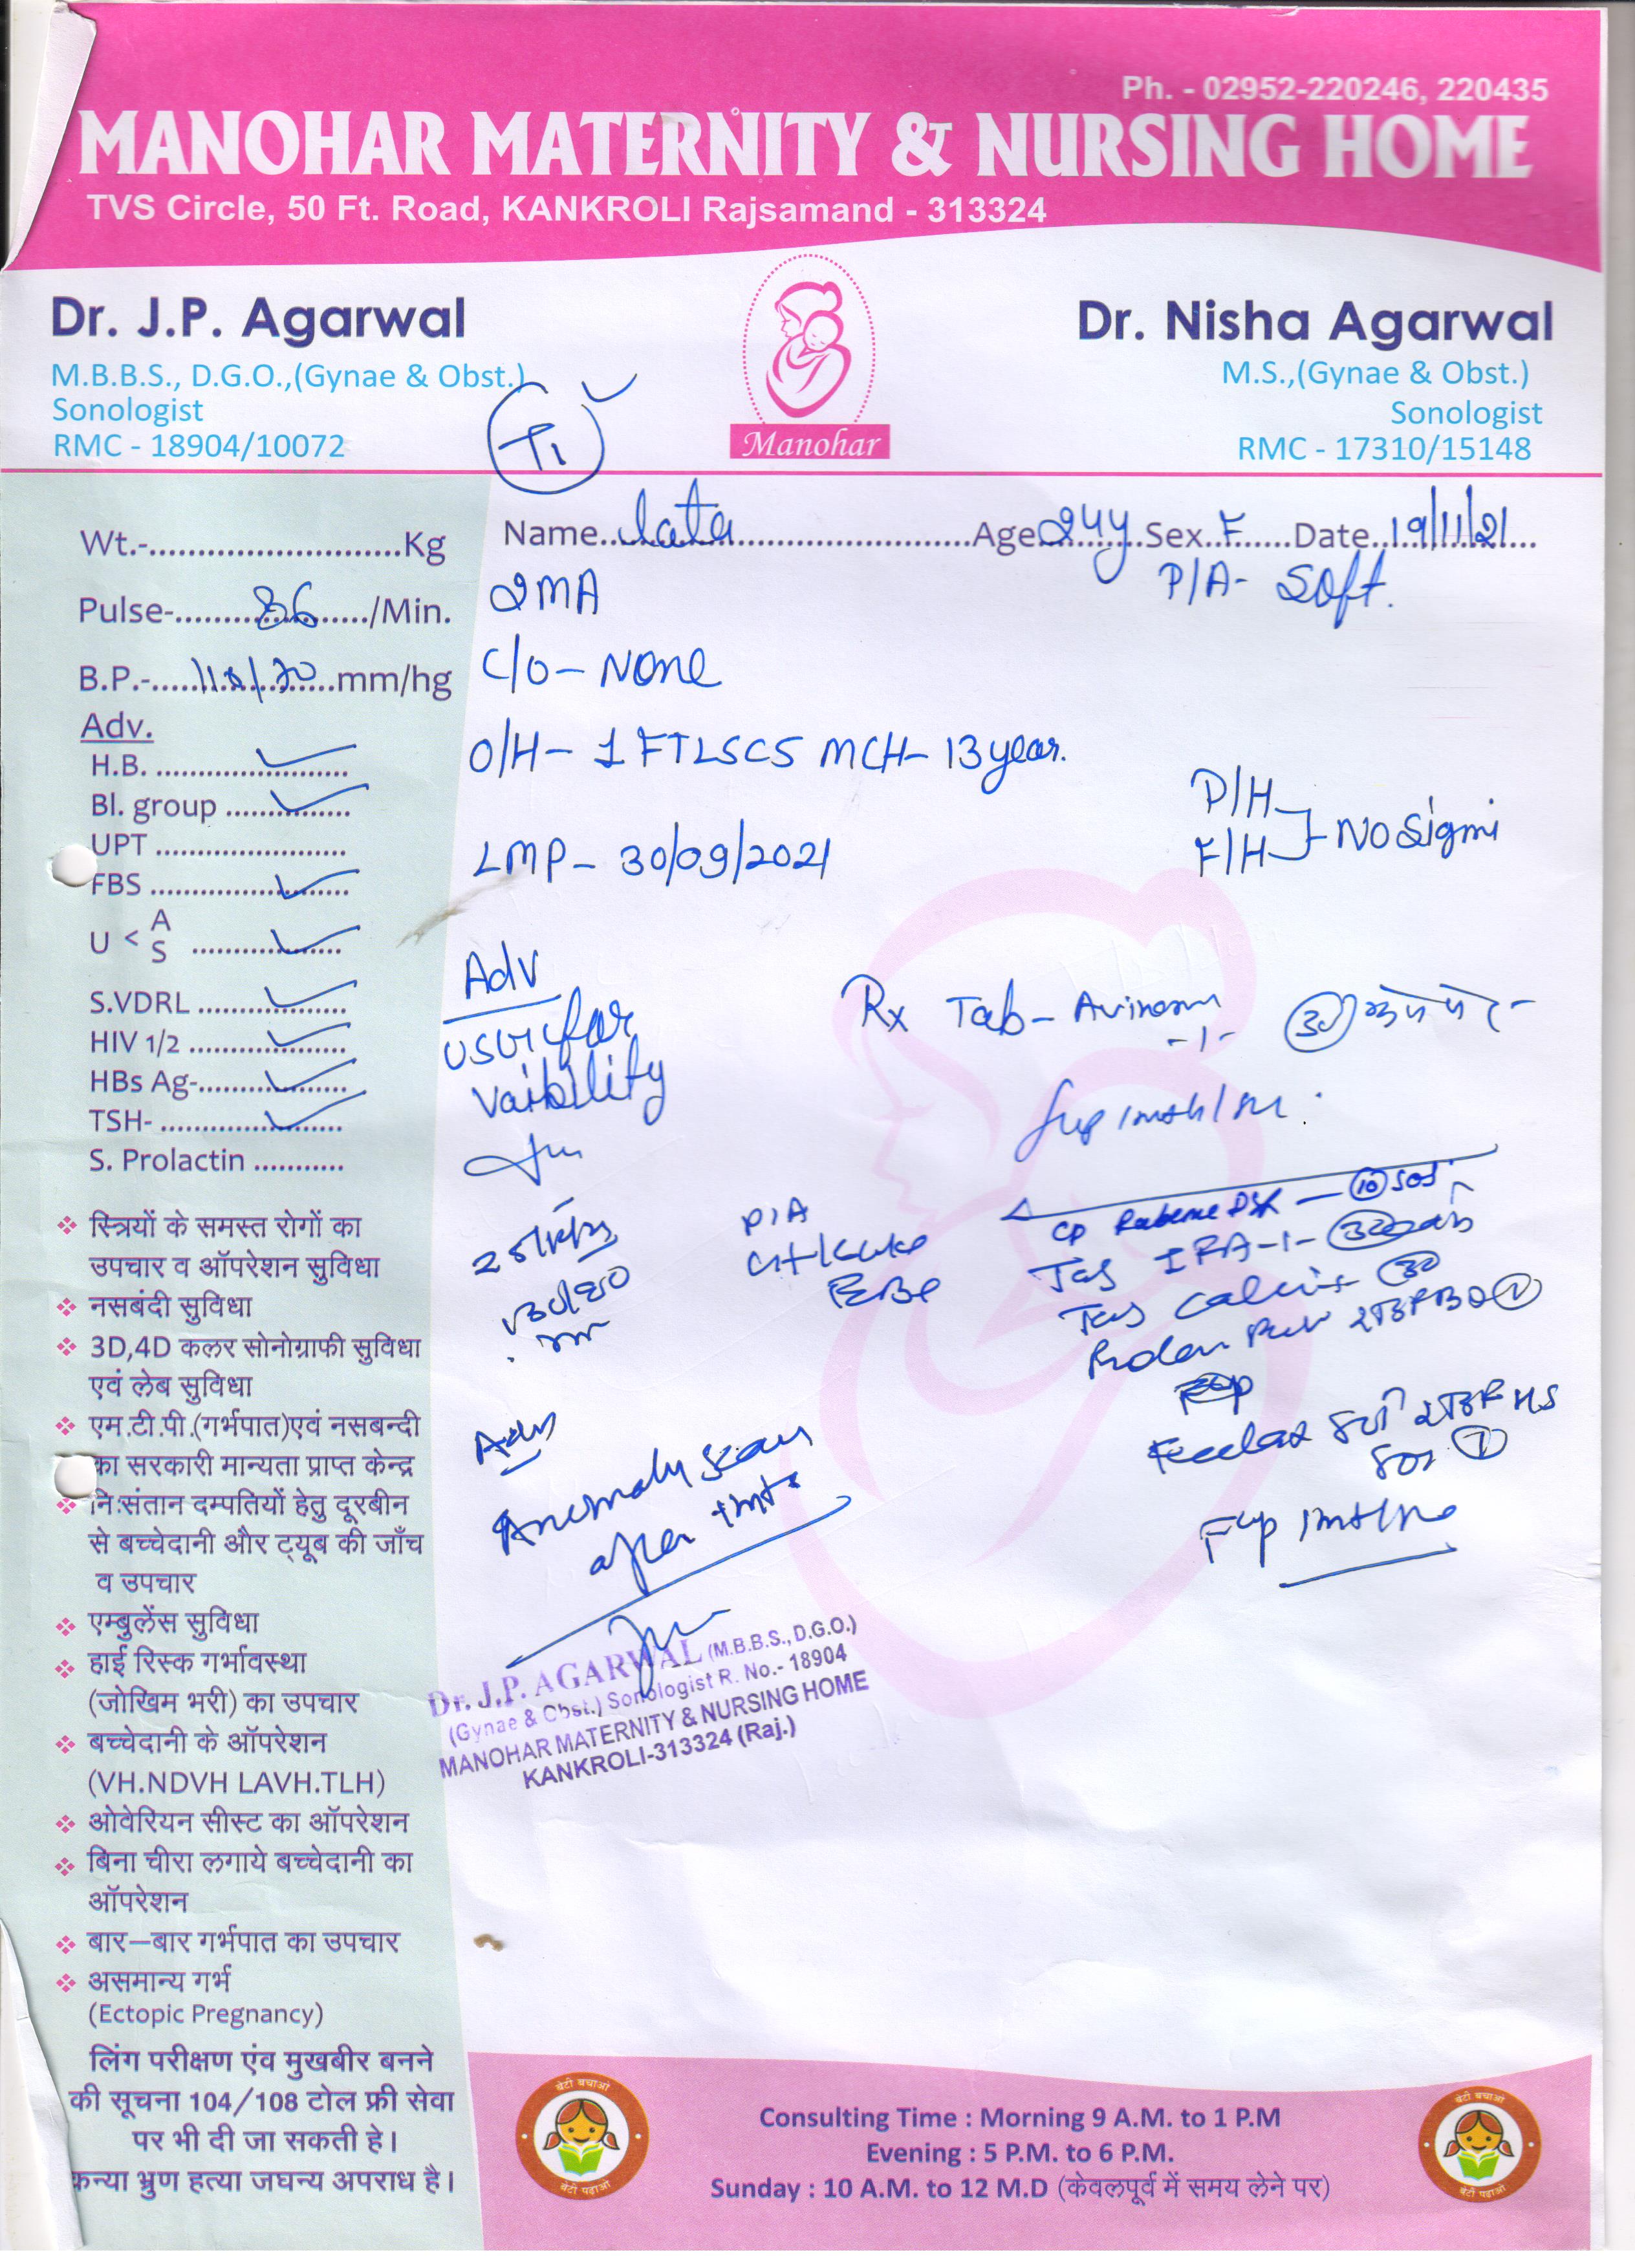 Ph. - 02952-220246, 220435
MANOHAR MATERNITY & NURSING HOME
TVS Circle, 50 Ft. Road, KANKROLI Rajsamand - 313324
Dr. J.P. Agarwal
M.B.B.S., D.G.O.,(Gynae & Obst.)
Sonologist
RMC - 18904/10072
T1
Manohar
Dr. Nisha Agarwal
M.S.,(Gynae & Obst.)
Sonologist
RMC - 17310/15148
Name..lata..Age 24y Sex..F..Date..19/11/21
P/A- Soft.
2MA
C/O - None
O/H - 1 FTLSCS MCH - 13 year.
P/H
F/H } No Signi
LMP - 30/09/2021
Adv
USG for
Vaibility
Rx Tab -
-1- (30)
1 mth
P/A
Tab IFA -1- (30)
Tab (30)
Adv
Anomaly scan
after 1 mth
Fup 1 mth
Wt.-..........Kg
Pulse-....86..../Min.
B.P.-....110/70....mm/hg
Adv.
H.B. ..........
Bl. group ..........
UPT ..........
FBS ..........
U < A
S ..........
S.VDRL ..........
HIV 1/2 ..........
HBs Ag-..........
TSH- ..........
S. Prolactin ..........
स्त्रियों के समस्त रोगों का
उपचार व ऑपरेशन सुविधा
नसबंदी सुविधा
3D,4D कलर सोनोग्राफी सुविधा
एवं लेब सुविधा
एम.टी.पी.(गर्भपात)एवं नसबन्दी
का सरकारी मान्यता प्राप्त केन्द्र
नि:संतान दम्पतियों हेतु दूरबीन
से बच्चेदानी और ट्यूब की जाँच
व उपचार
एम्बुलेंस सुविधा
हाई रिस्क गर्भावस्था
(जोखिम भरी) का उपचार
बच्चेदानी के ऑपरेशन
(VH.NDVH LAVH.TLH)
ओवेरियन सीस्ट का ऑपरेशन
बिना चीरा लगाये बच्चेदानी का
ऑपरेशन
बार–बार गर्भपात का उपचार
असमान्य गर्भ
(Ectopic Pregnancy)
लिंग परीक्षण एंव मुखबीर बनने
की सूचना 104/108 टोल फ्री सेवा
पर भी दी जा सकती हे।
कन्या भ्रुण हत्या जघन्य अपराध है।
Dr. J.P. AGARWAL (M.B.B.S., D.G.O.)
(Gynae & Obst.) Sonologist R. No.- 18904
MANOHAR MATERNITY & NURSING HOME
KANKROLI-313324 (Raj.)
बेटी बचाओ
बेटी पढ़ाओ
Consulting Time : Morning 9 A.M. to 1 P.M
Evening : 5 P.M. to 6 P.M.
Sunday : 10 A.M. to 12 M.D (केवलपूर्व में समय लेने पर)
बेटी बचाओ
बेटी पढ़ाओ